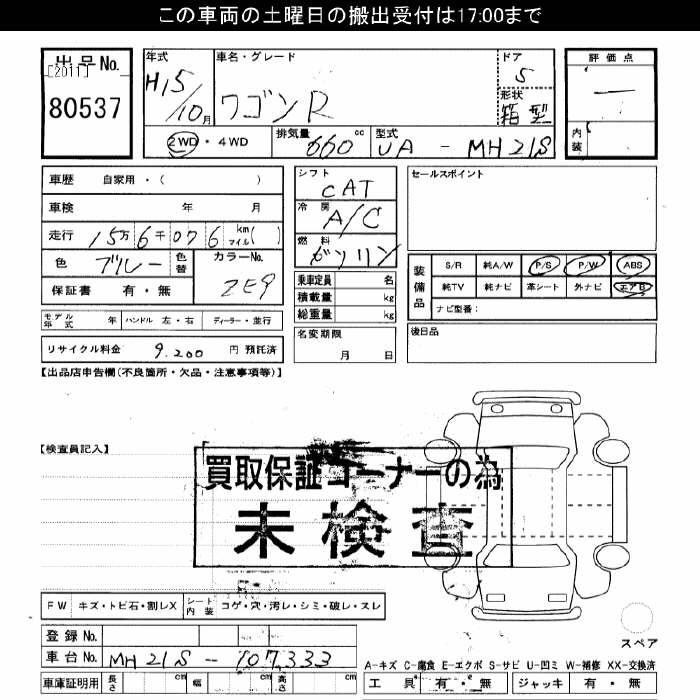 この車両の土曜日の搬出受付は17:00まで
出品No.
[2011]
80537
年式
H15/10月
車名・グレード
ワゴンR
ドア
5
形状
箱型
評価点
内装
2WD・4WD
排気量
660cc
型式
UA - MH21S
車歴 自家用・( )
車検 年 月
走行 15万6千076 km マイル( )
色 ブルー 色替
カラーNo. ZE9
保証書 有・無
モデル年式 年 ハンドル 左・右 ディーラー・並行
リサイクル料金 9,200 円 預託済
シフト
CAT
冷房
A/C
燃料
ガソリン
乗車定員 名
積載量 kg
総重量 kg
名変期限
月 日
セールスポイント
装備品
S/R 純A/W P/S P/W ABS
純TV 純ナビ 革シート 外ナビ エアB
ナビ型番:
後日品
【出品店申告欄(不良箇所・欠品・注意事項等)】
【検査員記入】
買取保証コーナーの為
未検査
FW キズ・トビ石・割レX シート内装 コゲ・穴・汚レ・シミ・破レ・スレ
登録No.
車台No. MH21S-107333
車庫証明用 長さ cm 幅 cm 高さ cm
スペア
A-キズ C-腐食 E-エクボ S-サビ U-凹ミ W-補修 XX-交換済
工具 有・無 ジャッキ 有・無